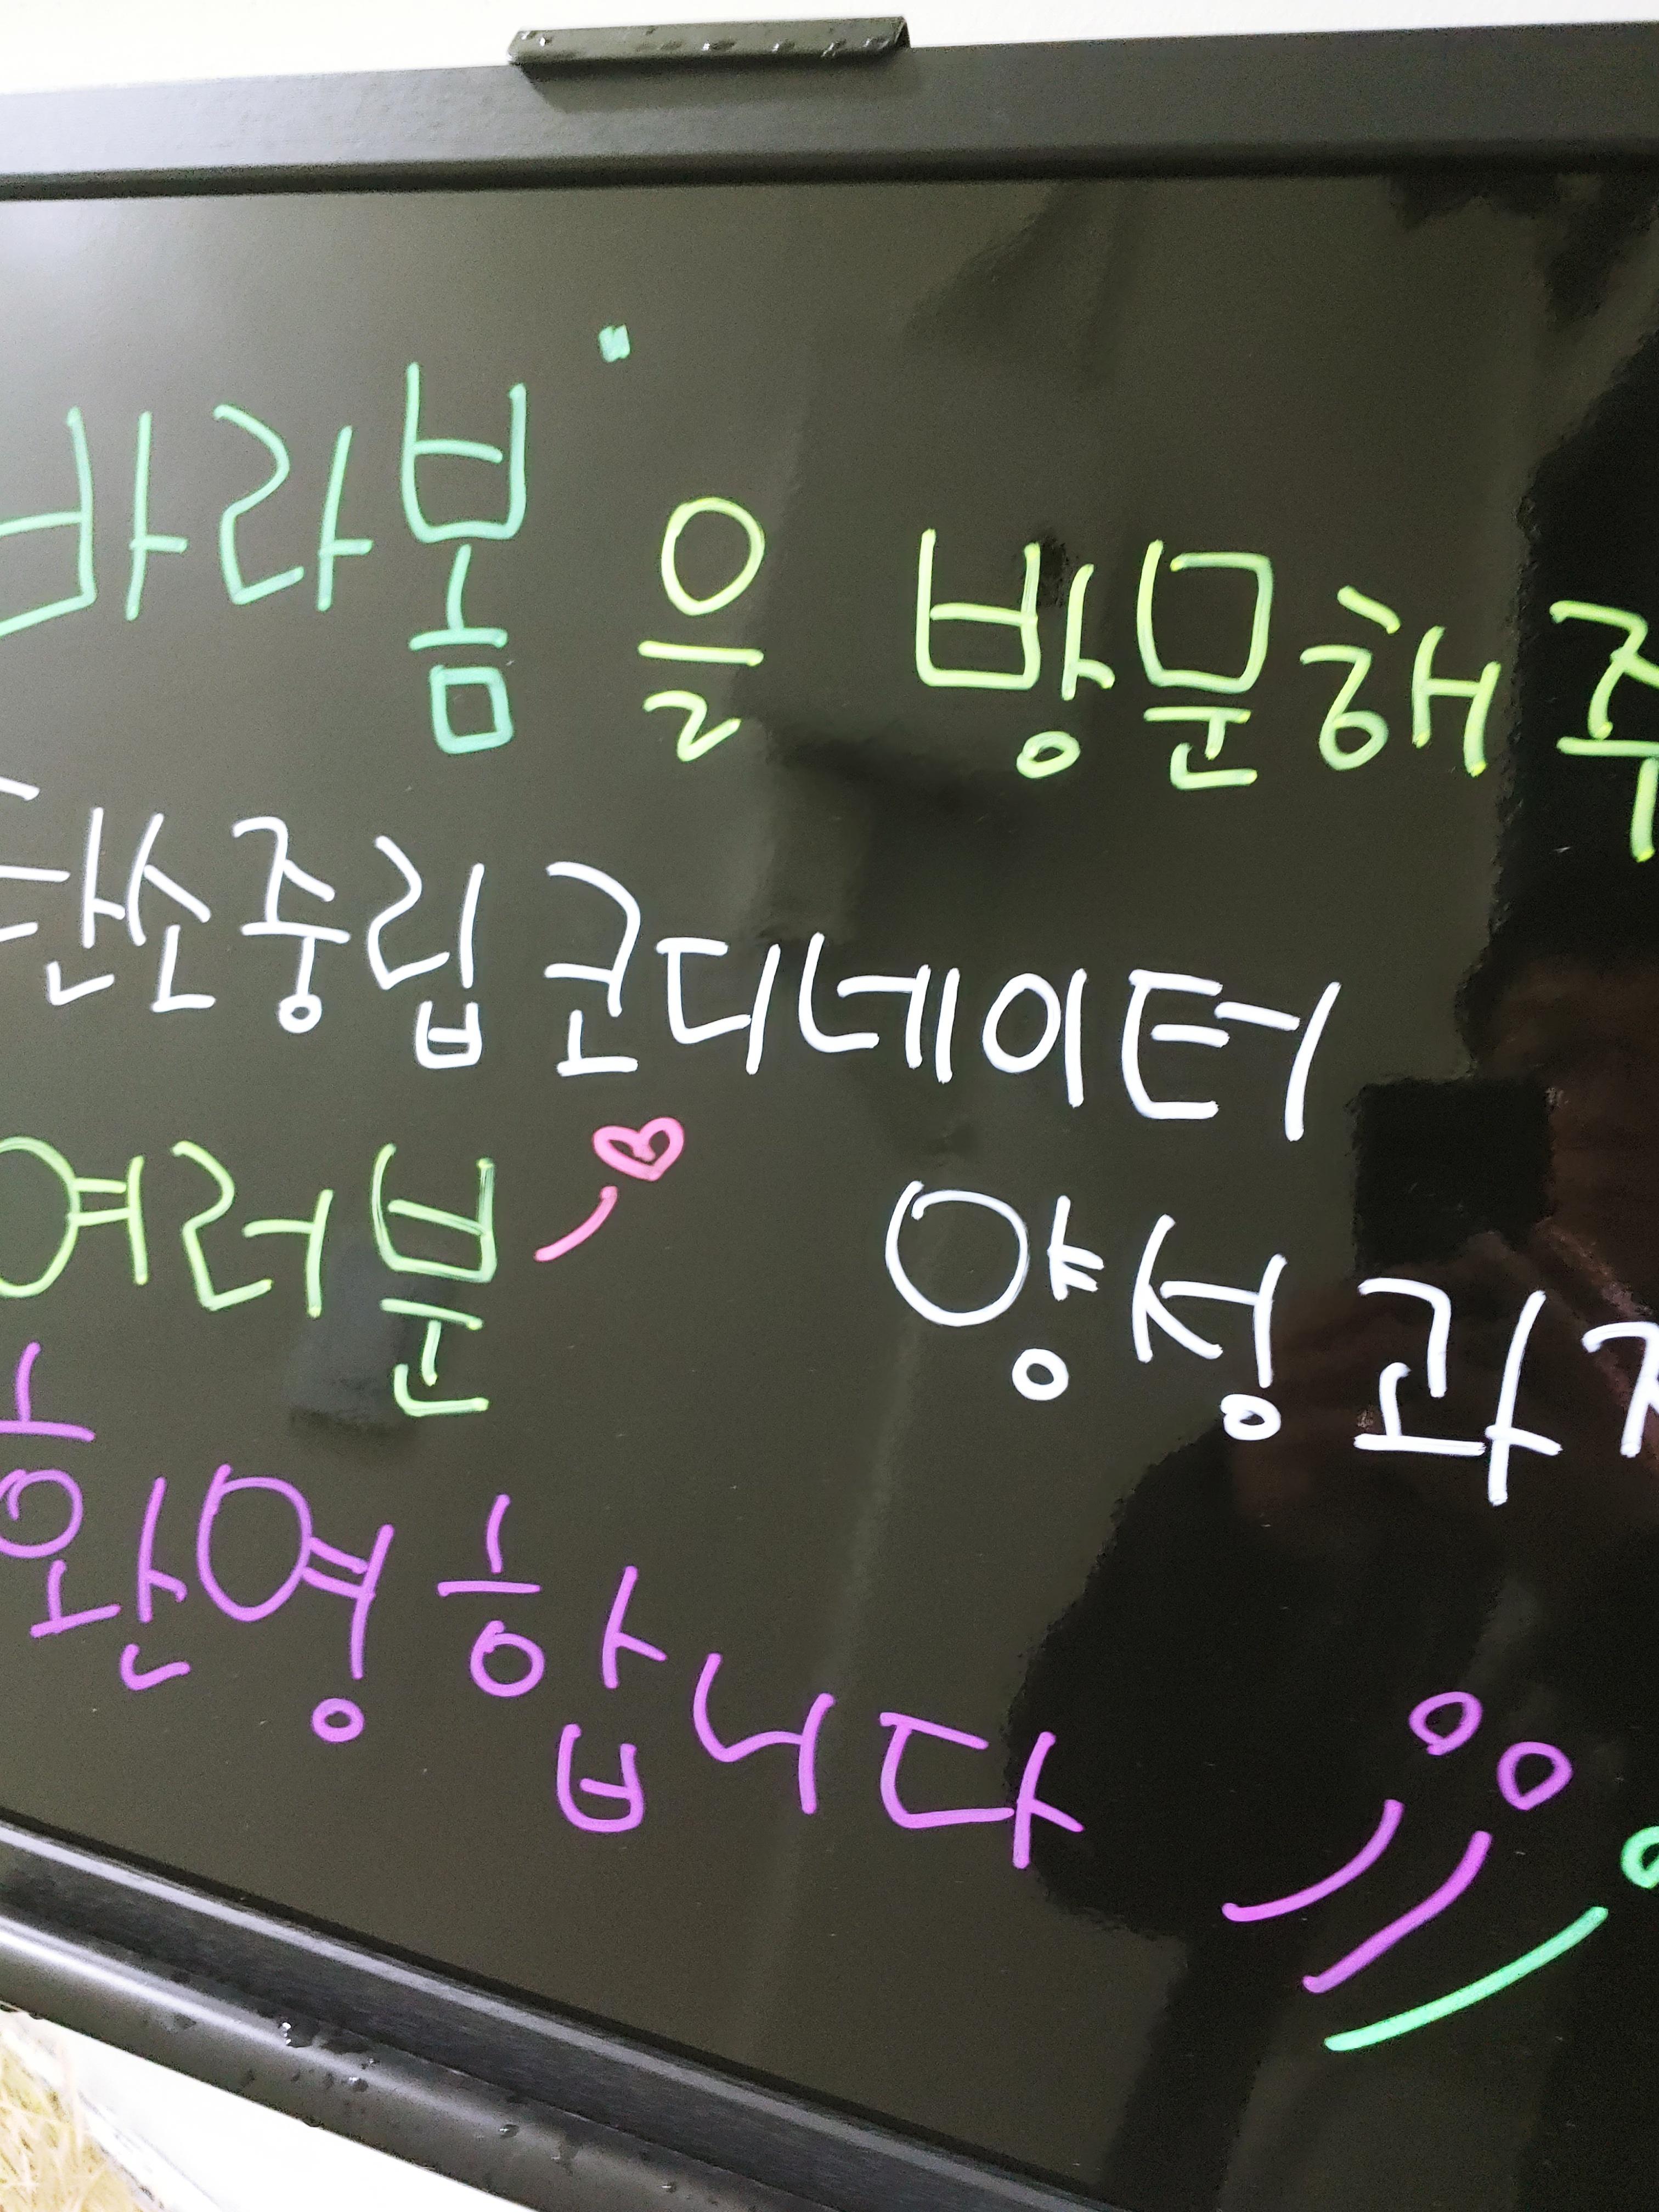 바라봄"을 방문해 주
탄소중립 코디네이터
양성 과
여러분
환영합니다